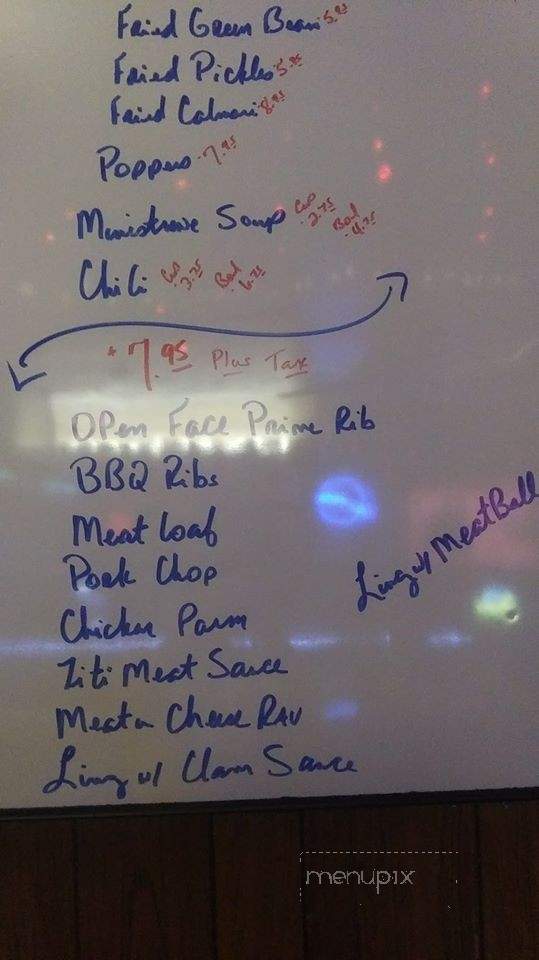 Fried Green Beans 5.95
Fried Pickles 5.95
Fried Calmari 8.95
Poppers 7.95
Ministrone Soup Cup 2.75 Bowl 4.75
Chili Cup 3.75 Bowl
7.95 Plus Tax
Open Face Prime Rib
BBQ Ribs
Meat Loaf
Pork Chop
Chicken Parm
Ziti Meat Sauce
Meat or Cheese RAV
Ling w/ Clam Sauce
Ling w/ MeatBall
menupix